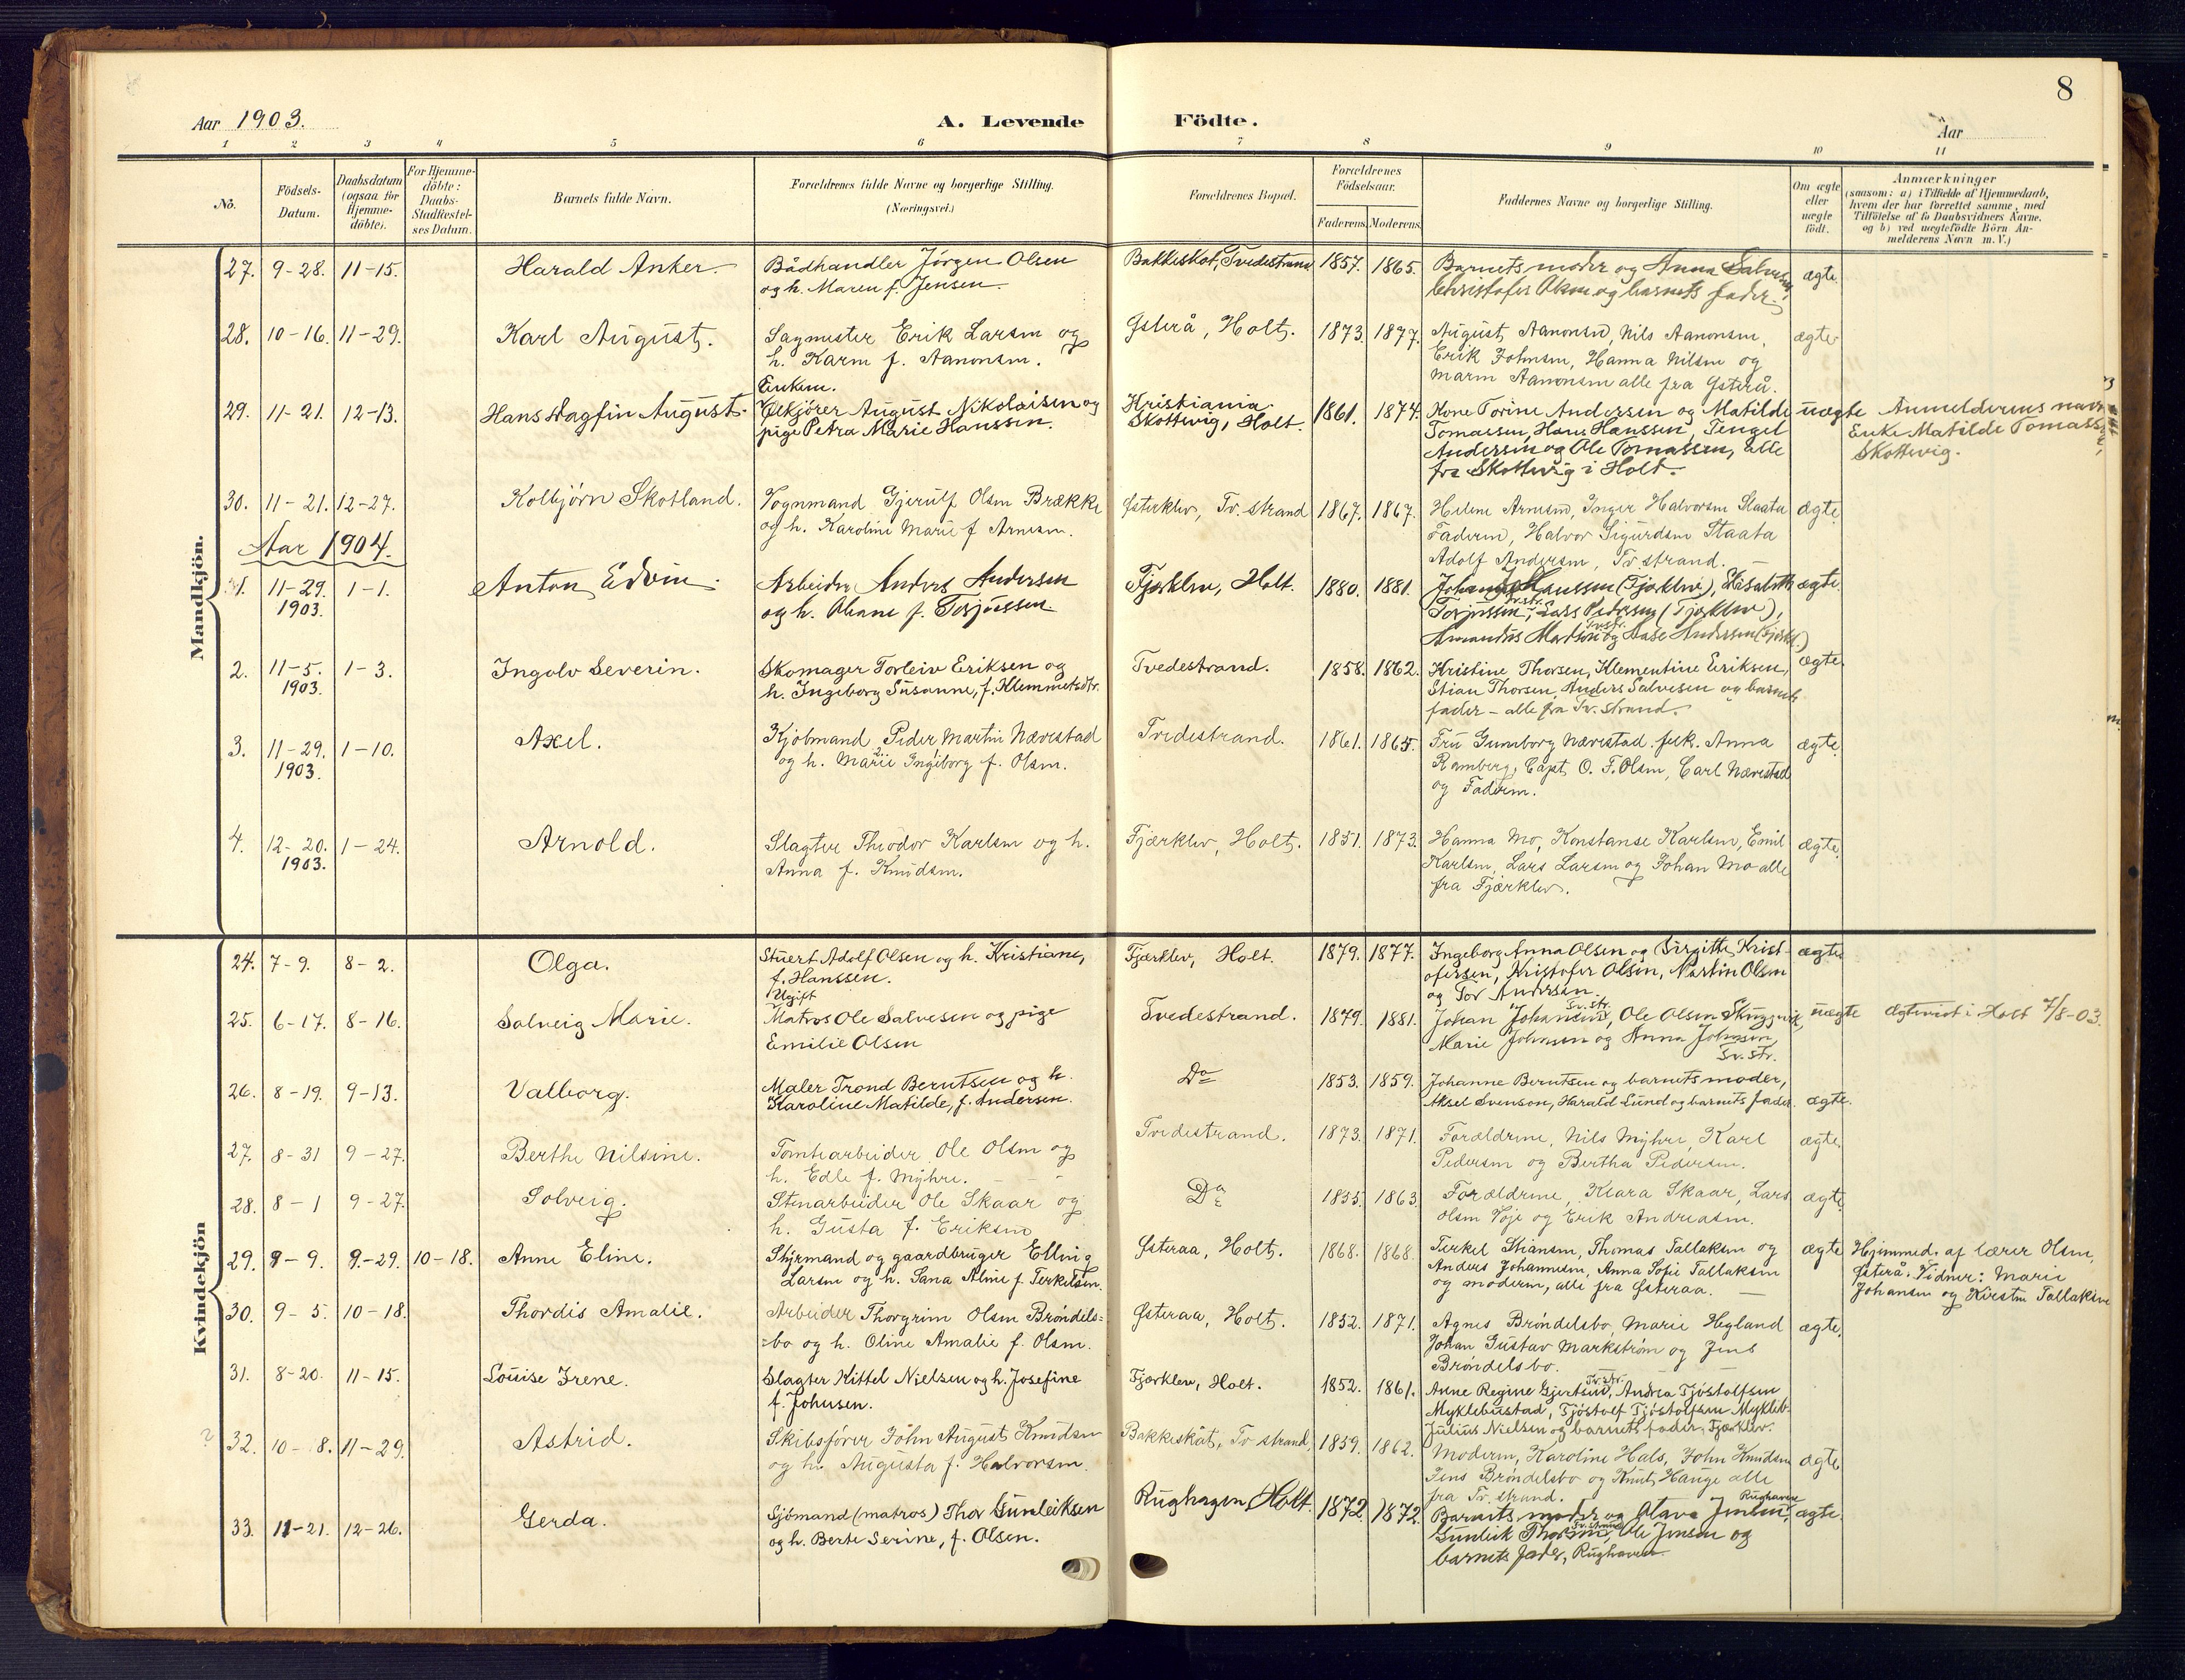 8
Aar 1903.
A. Levende Födte.
Aar
1 2 3 4 5 6 7 8 9 10 11
No.
Födsels-Datum.
Daabsdatum (ogsaa for Hjemme-döbte).
For Hjemme-döbte: Daabs-Stadfæstel-ses Datum.
Barnets fulde Navn.
Forældrenes fulde Navne og borgerlige Stilling. (Næringsvei.)
Forældrenes Bopæl.
Forældrenes Födselsaar.
Faderens. Moderens.
Faddernes Navne og borgerlige Stilling.
Om ægte eller uægte födt.
Anmærkninger
(saasom: a) i Tilfælde af Hjemmedaab,
hvem der har forrettet samme, med
Tilföielse af to Daabsvidners Navne,
og b) ved uægtefödte Börn An-
melderens Navn m. V.)
Mandkjön.
27. 9-28. 11-15. Harald Anker. Bådhandler Jörgen Olsen
og h. Maren f. Jensen.
Bakkeskot, Tvedestrand 1857. 1865. Barnets moder og Anna Salvesen,
Christofer Olsen og barnets fader. ægte.
28. 10-16. 11-29. Karl August. Sagmester Erik Larsen og
h. Karen f. Aanonsen.
Østerå, Holt. 1873. 1877. August Aanonsen, Nils Aanonsen,
Erik Johnsen, Hanna Nilsen og
Maren Aanonsen alle fra Østerå. ægte
29. 11-21. 12-13. Hans Dagfin August. Enkem.
Ølkjører August Nikolaisen og
pige Petra Marie Hanssen.
Kristiania.
Skottevig, Holt. 1861. 1874. Kone Torine Andersen og Matilde
Tomassen, Hans Hanssen, Tengel
Andersen og Ole Tomassen, alle
fra Skottevig i Holt. uægte Anmelderens navn
Enke Matilde Tomassen,
Skottevig.
30. 11-21. 12-27. Kolbjörn Skotland. Vognmand Gjerulf Olsen Brække
og h. Karoline Marie f. Arnesen.
Østerklev, Tv.strand 1867. 1867. Helene Arnesen, Inger Halvorsen Staata
Faderen, Halvor Sigurdsen Staata
Adolf Andersen, Tv.strand. ægte.
Aar 1904.
1. 11-29. 1903. 1-1. Anton Edvin. Arbeider Anders Andersen
og h. Oleane f. Torjussen.
Fjærklev, Holt. 1880. 1881. Johan Hanssen (Fjærklev), Elisabeth
Torjussen, Tv.str. Lars Pedersen (Fjærklev),
Amandus Madsen Tv.str. og Aase Andersen (Fjærkl.) ægte.
2. 11-5. 1903. 1-3. Ingolv Severin. Skomager Torleiv Eriksen og
h. Ingeborg Susanne, f. Klemmetsdtr.
Tvedestrand. 1858. 1862. Kristine Thorsen, Klementine Eriksen,
Stian Thorsen, Anders Salvesen og barnets
fader - alle fra Tv.strand. ægte
3. 11-29. 1903. 1-10. Axel. Kjöbmand Peder Martin Næverstad
og h. Marie Ingeborg f. Olsen.
Tvedestrand. 1861. 1865. Fru Gunnborg Næverstad frk. Anna
Ramberg, Capt. O. F. Olsen, Carl Næverstad
og Faderen. ægte.
4. 12-20. 1903. 1-24. Arnold. Slagter Theodor Karlsen og h.
Anna f. Knudsen.
Fjærklev, Holt. 1851. 1873. Hanna Mo, Konstanse Karlsen, Emil
Karlsen, Lars Larsen og Johan Mo alle
fra Fjærklev. ægte.
Kvindekjön
24. 7-9. 8-2. Olga. Stuert Adolf Olsen og h. Kristiane,
f. Hanssen.
Fjærklev, Holt. 1879. 1877. Ingeborg Anna Olsen og Birgitte Krist-
ofersen, Kristofer Olsen, Martin Olsen
og Tor Andersen. ægte
25. 6-17. 8-16. Solveig Marie. Ugift
Matros Ole Salvesen og pige
Emilie Olsen
Tvedestrand. 1879. 1881. Johan Johansen, Tv.str. Ole Olsen Skuggevik,
Marie Johnsen og Anna Johnsen,
Tv.str. uægte Ægteviet i Holt 7/8-03.
26. 8-19. 9-13. Valborg. Maler Trond Berntsen og h.
Karoline Matilde, f. Andersen.
Do 1853. 1859. Johanne Berntsen og barnets moder,
Aksel Svenson, Harald Lund og barnets fader. ægte.
27. 8-31 9-27. Berthe Nilsine. Tomtearbeider Ole Olsen og
h. Edle f. Myhre.
Tvedestrand. 1873. 1871. Forældrene, Nils Myhre, Karl
Pedersen og Bertha Pedersen. ægte.
28. 8-1 9-27. Solveig. Stenarbeider Ole Skaar og
h. Gusta f. Eriksen
Do 1855. 1863. Forældrene, Klara Skaar, Lars
Olsen Voje og Erik Andreasen. ægte.
29. 9-9. 9-29. 10-18. Anne Eline. Styrmand og gaardbruger Elling
Larsen og h. Sana Aline f. Terkelsen.
Østeraa, Holt. 1868. 1868. Terkel Stiansen, Thomas Tallaksen og
Anders Johannesen, Anna Sofie Tallaksen
og moderen, alle fra Østeraa. ægte Hjemmed. af lærer Olsen,
Østerå. Vidner: Marie
Johansen og Kirsten Tallaksen
30. 9-5. 10-18. Thordis Amalie. Arbeider Thorgrim Olsen Bröndels=
=bo og h. Oline Amalie f. Olsen.
Østeraa, Holt. 1852. 1871. Agnes Bröndelsbo, Marie Hegland
Johan Gustav Markström og Jens
Bröndelsbo. ægte.
31. 8-20. 11-15. Louise Irene. Slagter Kittel Nielsen og h. Josefine
f. Johnsen.
Fjærklev, Holt. 1852. 1861. Anne Regine Gjertsen, Tv.str. Andrea Tjöstolfsen
Myklebustad, Tjöstolf Tjöstolfsen Mykleb.
Julius Nielsen og barnets fader, Fjærklev.
32. 10-18. 11-29. Astrid. Skibsförer John August Knudsen
og h. Augusta f. Halvorsen.
Bakkeskåt, Tv.strand, 1859. 1862. Moderen, Karoline Hals, John Knudsen
Jens Bröndelsbo og Knut Hauge alle
fra Tv.strand. ægte
33. 11-21. 12-26. Gerda. Sjömand (matros) Thor Gunleiksen
og h. Berte Serine, f. Olsen.
Rughagen, Holt. 1872. 1872. Barnets moder og Olava Jensen, Rughaven
Gunleik Thorsen, Tv.strand Ole Jensen og
barnets fader, Rughaven. ægte.